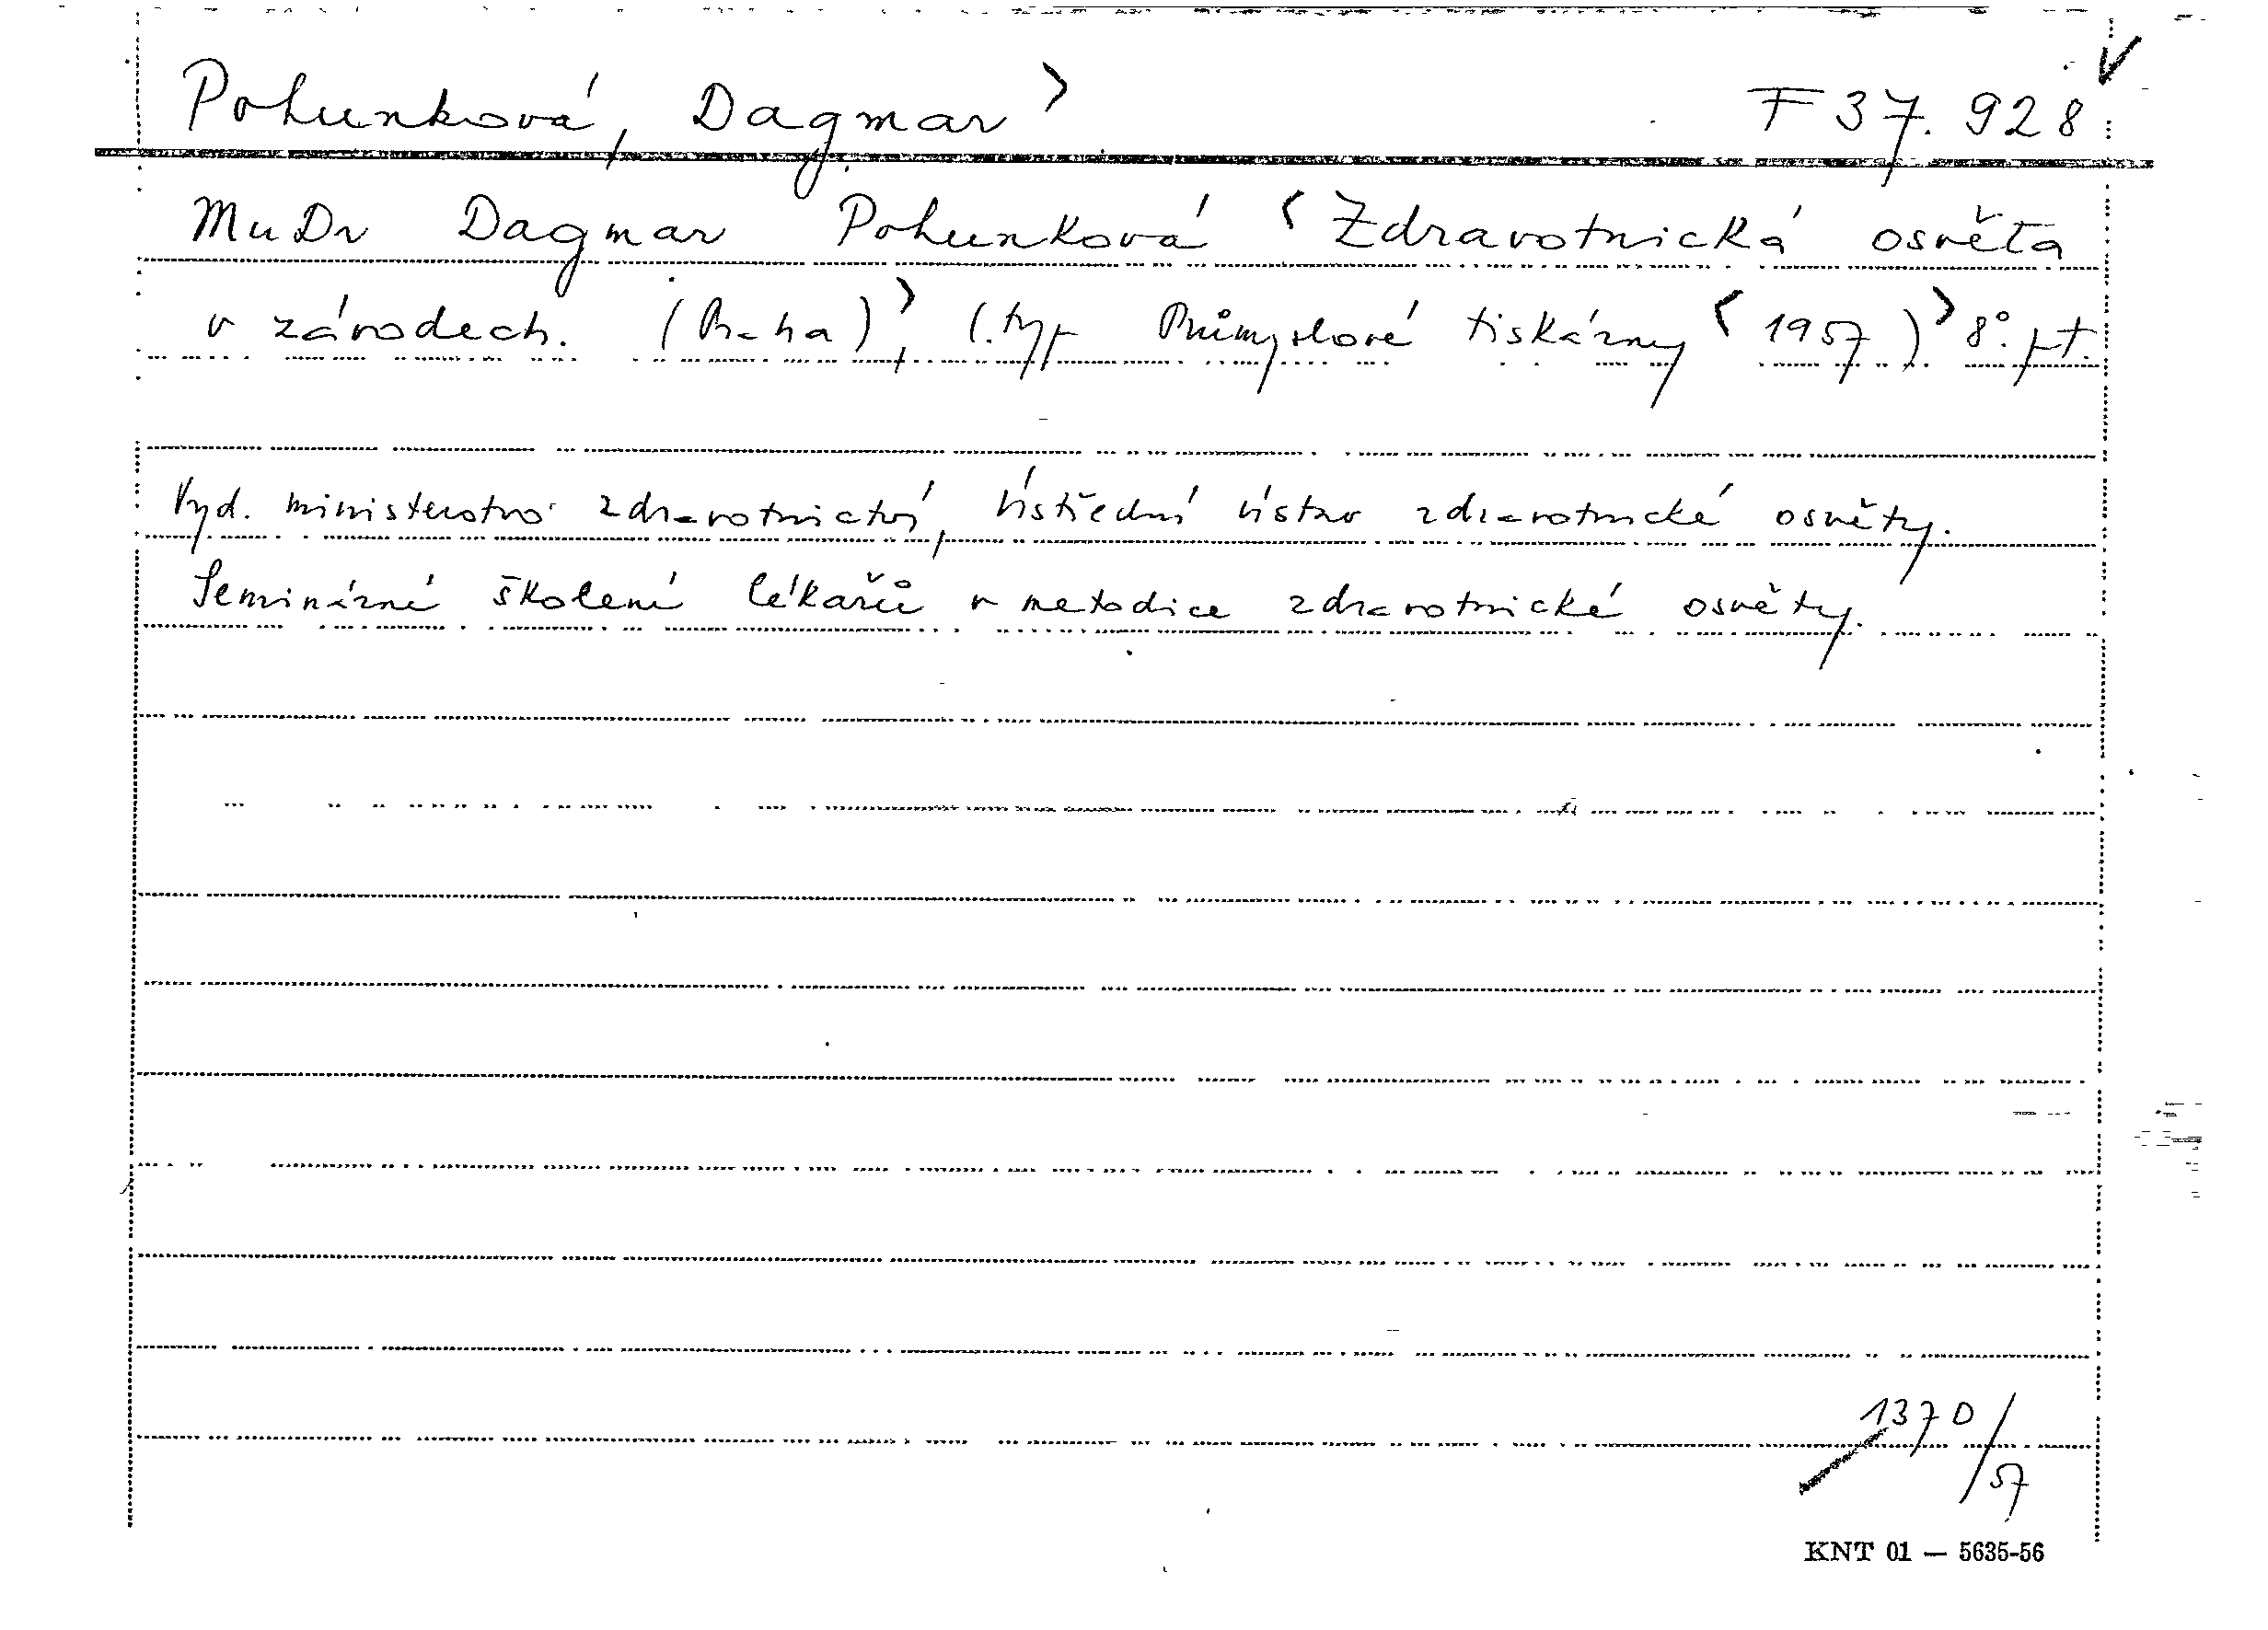 Pohunková, Dagmar > F 37.928
MuDr Dagmar Pohunková < Zdravotnická osvěta
v závodech. (Praha) >, (.typ Průmyslové tiskárny < 1957) > 8°. pt.
Vyd. ministerstvo zdravotnictví, Ústřední ústav zdravotnické osvěty.
Seminární školení lékařů v metodice zdravotnické osvěty.
1370/57
KNT 01 — 5635-56